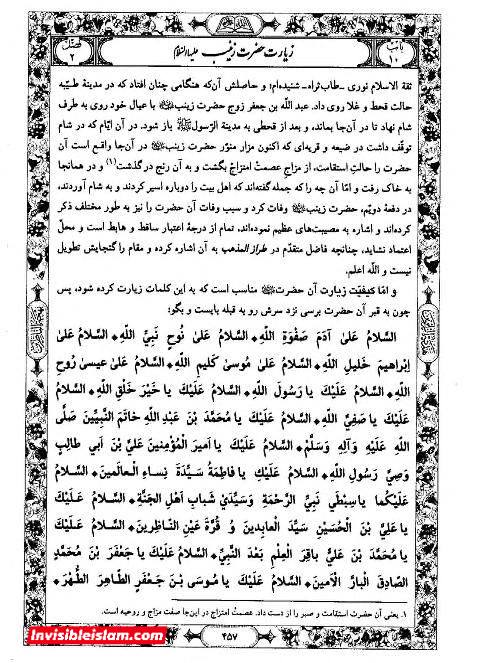 باب ١٠
زیارت حضرت زینب علیها السّلام
فصل ٢
ثقة الاسلام نوری ـ طاب ثراه ـ شنیده‌ام؛ و حاصلش آن‌که هنگامی چنان افتاد که در مدینهٔ طیّبه
حالت قحط و غلا روی داد. عبد اللّه بن جعفر زوج حضرت زینب با عیال خود روی به طرف
شام نهاد تا در آن‌جا بماند، و بعد از قحطی به مدینة الرّسول باز شود. در آن ایّام که در شام
توقّف داشت در ضیعه و قریه‌ای که اکنون مزار منوّر حضرت زینب در آن‌جا واقع است آن
حضرت را حالتِ استقامت، از مزاجِ عصمتْ امتزاج بگشت و به آن رنج در گذشت(١) و در همانجا
به خاک رفت و امّا آن چه را که جمله گفته‌اند که اهل بیت را دوباره اسیر کردند و به شام آوردند،
در دفعهٔ دویّم، حضرت زینب وفات کرد و سبب وفات آن حضرت را نیز به طور مختلف ذکر
کرده‌اند و اشاره به مصیبت‌های عظیم نموده‌اند، تمام از درجهٔ اعتبار ساقط و هابط است و محلّ
اعتماد نشاید، چنانچه فاضل متقدّم در طراز المذهب به آن اشاره کرده و مقام را گنجایش تطویل
نیست و اللّه اعلم.
و امّا کیفیّت زیارت آن حضرت مناسب است که به این کلمات زیارت کرده شود، پس
چون به قبر آن حضرت برسی نزد سرش رو به قبله بایست و بگو:
السَّلامُ عَلیٰ آدَمَ صَفْوَةِ اللَّهِ * السَّلامُ عَلیٰ نُوحٍ نَبِیِّ اللَّهِ * السَّلامُ عَلیٰ
اِبْراهیمَ خَلیلِ اللَّهِ * السَّلامُ عَلیٰ مُوسیٰ کَلیمِ اللَّهِ * السَّلامُ عَلیٰ عیسیٰ رُوحِ
اللَّهِ * السَّلامُ عَلَیْکَ یا رَسُولَ اللَّهِ * السَّلامُ عَلَیْکَ یا خَیْرَ خَلْقِ اللَّهِ * السَّلامُ
عَلَیْکَ یا صَفِیَّ اللَّهِ * السَّلامُ عَلَیْکَ یا مُحَمَّدَ بْنَ عَبْدِ اللَّهِ خاتَمَ النَّبِیّینَ صَلَّی
اللَّهُ عَلَیْهِ وَآلِهِ وَسَلَّمْ * السَّلامُ عَلَیْکَ یا اَمیرَ الْمُؤْمِنینَ عَلِیَّ بْنَ اَبی طالِبٍ
وَصِیَّ رَسُولِ اللَّهِ * السَّلامُ عَلَیْکِ یا فاطِمَةُ سَیِّدَةَ نِساءِ الْعالَمینَ * السَّلامُ
عَلَیْکُما یا سِبْطَیْ نَبِیِّ الرَّحْمَةِ وَسَیِّدَیْ شَبابِ اَهْلِ الجَنَّةِ * السَّلامُ عَلَیْکَ
یا عَلِیَّ بْنَ الْحُسَیْنِ سَیِّدَ الْعابِدینَ وَ قُرَّةَ عَیْنِ النّاظِرینَ * السَّلامُ عَلَیْکَ
یا مُحَمَّدَ بْنَ عَلِیٍّ باقِرَ الْعِلْمِ بَعْدَ النَّبِیِّ * السَّلامُ عَلَیْکَ یا جَعْفَرَ بْنَ مُحَمَّدٍ
الصّادِقَ الْبارَّ الْاَمینَ * السَّلامُ عَلَیْکَ یا مُوسَی بْنَ جَعْفَرٍ الطّاهِرَ الطُّهْرَ *
١. یعنی آن حضرت استقامت و صبر را از دست داد. عصمتْ امتزاج در این‌جا صفت مزاج و روحیه است.
۴۵۷
Invisibleislam.com